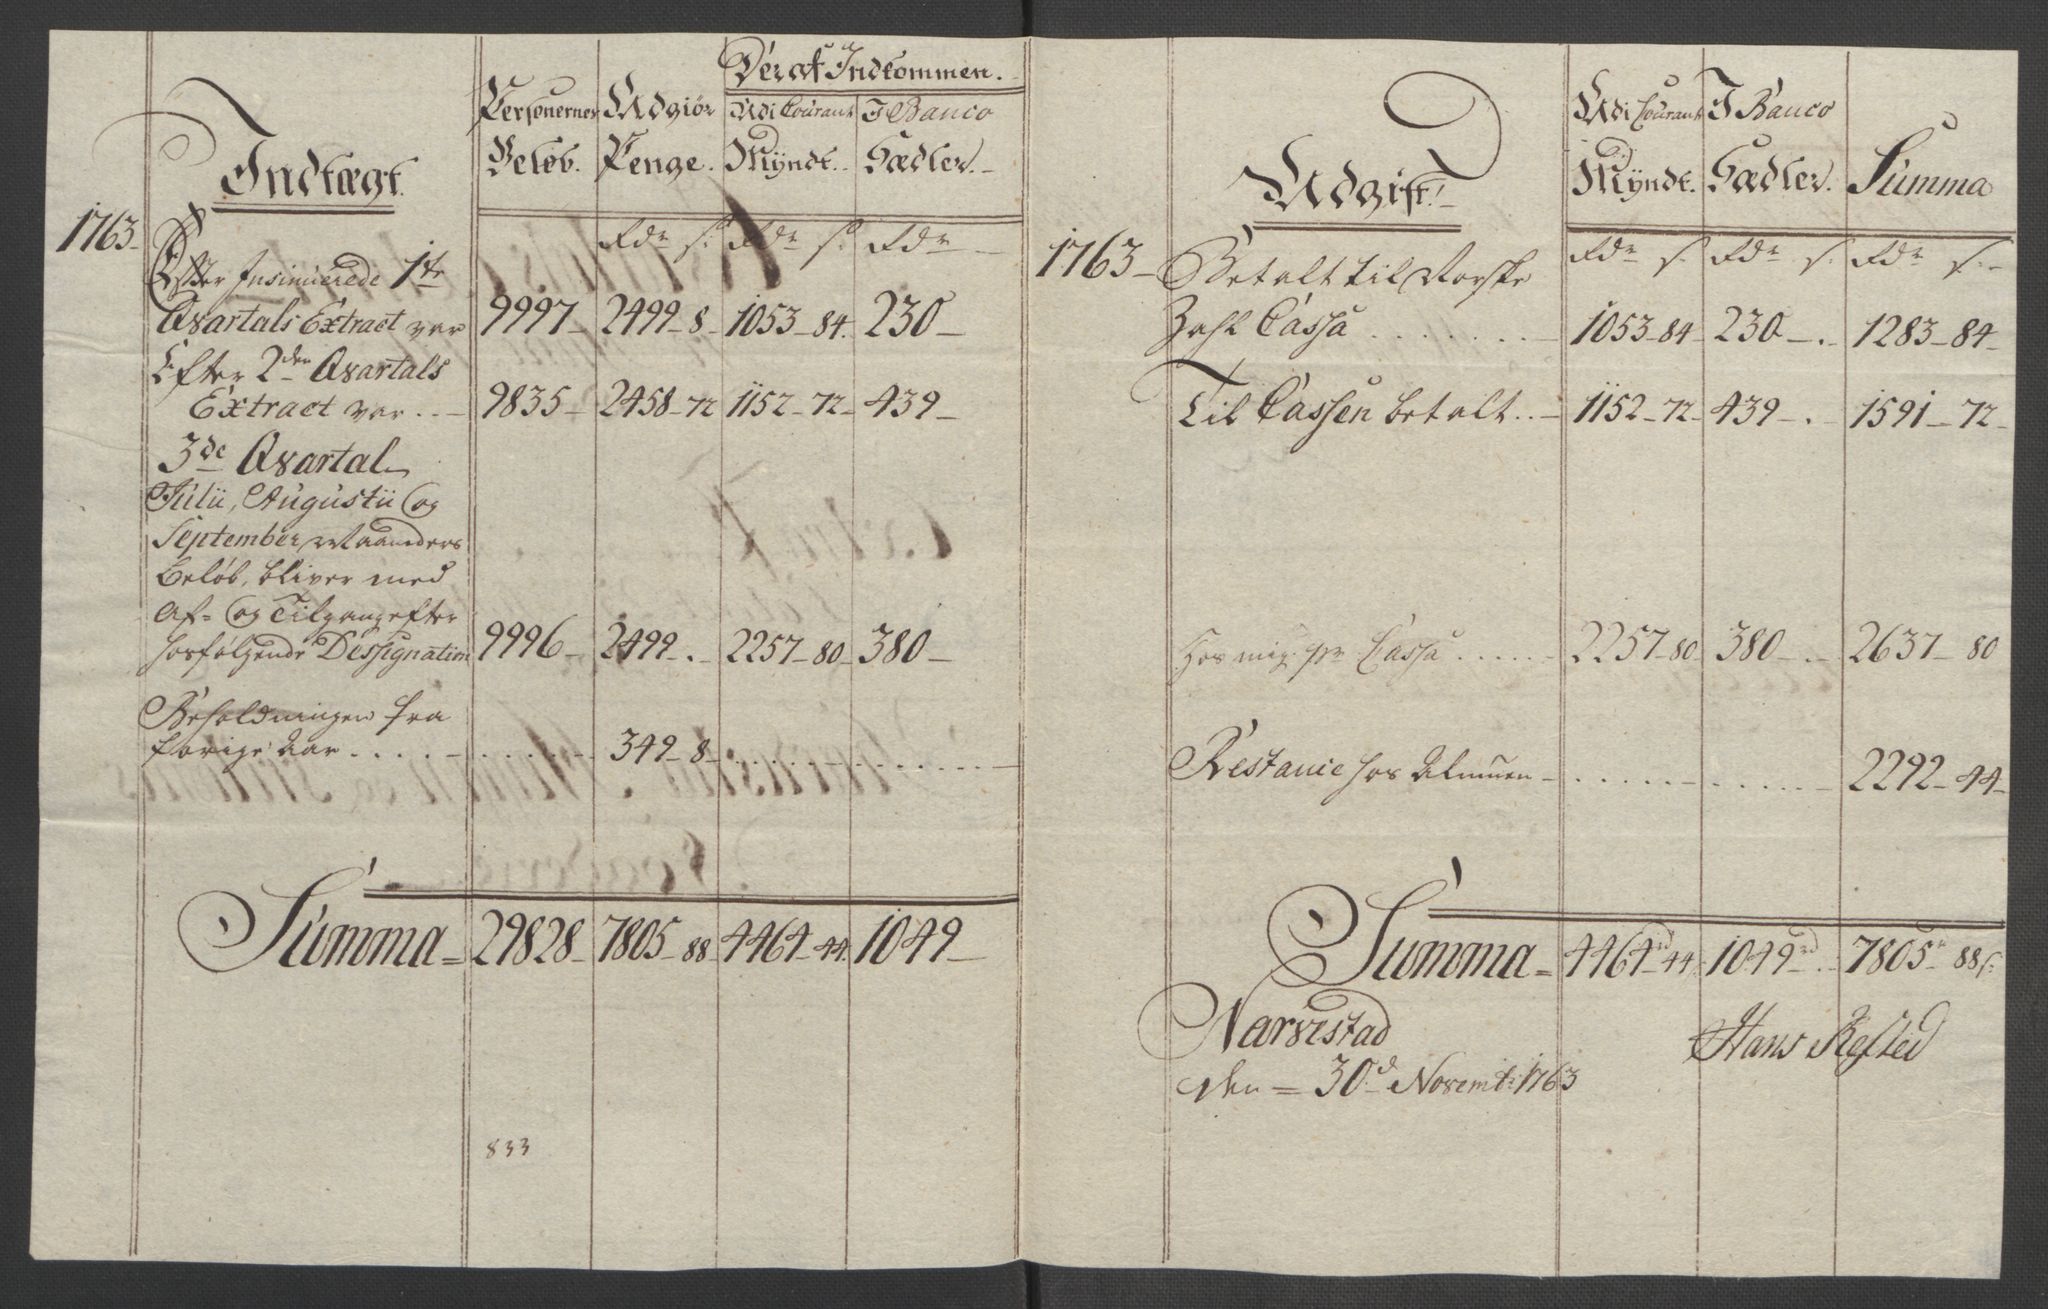 Indtægt.
Personernes Beløb.
Udgiør Penge.
Deraf Indkommen.
Udi Courant Myndt.
I Banco Sedler.
Rdr s: Rdr s: Rdr
1763
Efter Insinuerede 1te
Qvartals Extract var 9997 2499 8 1053 84. 230
Efter 2den Qvartals
Extract var 9835 2458 72 1152 72 439
3de Qvartal
Julii, Augustii Og
September Maaneders
Beløb, bliver med
Af- Og Tilgang efter
hosfølgende Dessignation 9996 2499 . 2257 80 380
Beholdningen fra
forige Aar 349 8
Summa = 29828 7805 88 4464 44. 1049
833
Udgift
Udi Courant Myndt.
I Banco Sedler.
Summa
1763
Rdr s. Rdr s. Rdr s.
Betalt til Norske
Zahl Cassa 1053 84 230 . 1283 84
Til Cassen betalt 1152 72 439 . 1591 72
Hos mig pr Cassa 2257 80 380 . 2637 80
Restance hos Almuen 2292 44
Summa = 4464rd 44 1049rd . 7805r 88s:
Narvestad
den = 30d Novemb: 1763
Hans